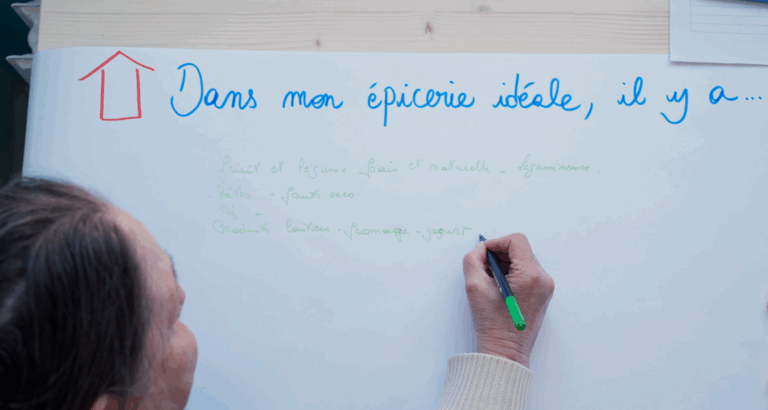 Dans mon épicerie idéale, il y a...
fruit et legums frais et naturelle - legumineuse.
- fruits secs
Produits laitiers - fromage - yogurt